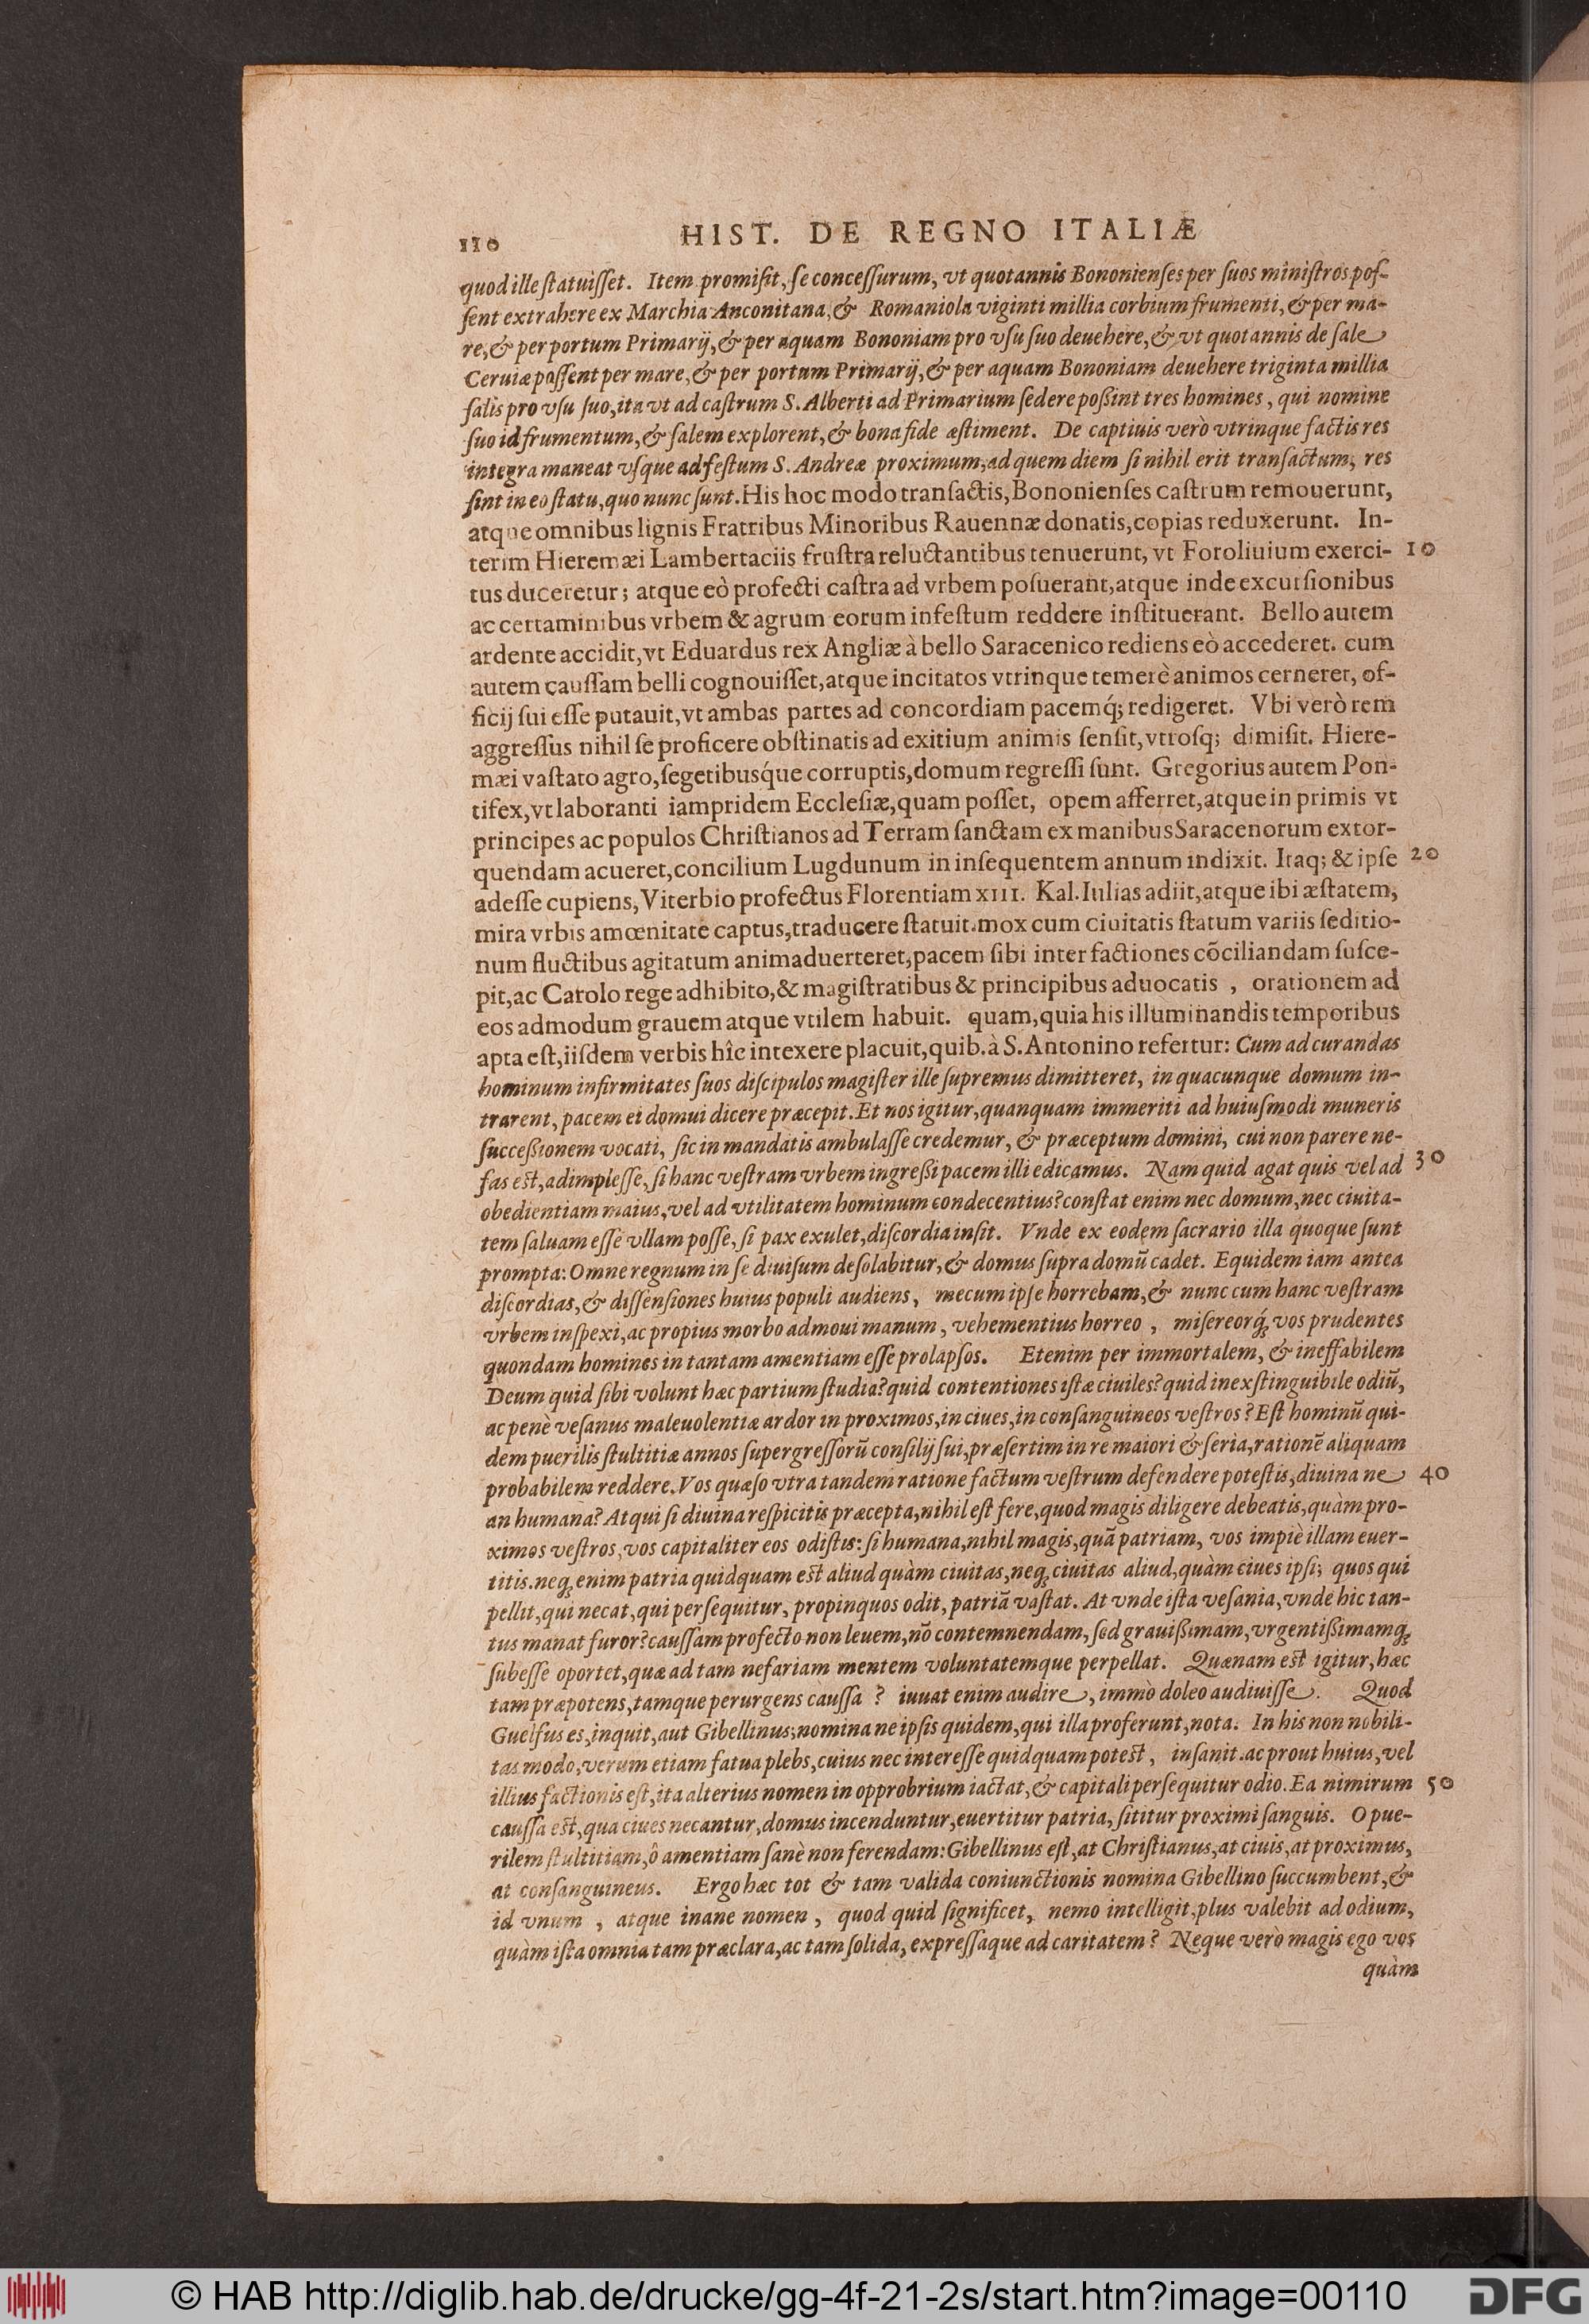 110 HIST. DE REGNO ITALIÆ
quod ille ſtatuiſſet. Item promiſit, ſe conceſſurum, vt quotannis Bononienſes per ſuos miniſtros poſ-
ſent extrahere ex Marchia Anconitana, & Romaniola viginti millia corbium frumenti, & per ma-
re, & per portum Primarij, & per aquam Bononiam pro vſu ſuo deuehere, & vt quotannis de ſale
Ceruiæ poſſent per mare, & per portum Primarij, & per aquam Bononiam deuehere triginta millia
ſalis pro vſu ſuo, ita vt ad caſtrum S. Alberti ad Primarium ſedere poßint tres homines, qui nomine
ſuo id frumentum, & ſalem explorent, & bona fide æſtiment. De captiuis verò vtrinque factis res
integra maneat vſque ad feſtum S. Andreæ proximum, ad quem diem ſi nihil erit tranſactum, res
ſint in eo ſtatu, quo nunc ſunt. His hoc modo tranſactis, Bononienſes caſtrum remouerunt,
atque omnibus lignis Fratribus Minoribus Rauennæ donatis, copias reduxerunt. In-
terim Hieremæi Lambertaciis fruſtra reluctantibus tenuerunt, vt Foroliuium exerci- 10
tus duceretur; atque eò profecti caſtra ad vrbem poſuerant, atque inde excurſionibus
ac certaminibus vrbem & agrum eorum infeſtum reddere inſtituerant. Bello autem
ardente accidit, vt Eduardus rex Angliæ à bello Saracenico rediens eò accederet. cum
autem cauſſam belli cognouiſſet, atque incitatos vtrinque temerè animos cerneret, of-
ficij ſui eſſe putauit, vt ambas partes ad concordiam pacemq́; redigeret. Vbi verò rem
aggreſſus nihil ſe proficere obſtinatis ad exitium animis ſenſit, vtroſq; dimiſit. Hiere-
mæi vaſtato agro, ſegetibuſq́ue corruptis, domum regreſſi ſunt. Gregorius autem Pon-
tifex, vt laboranti iampridem Eccleſiæ, quam poſſet, opem afferret, atque in primis vt
principes ac populos Chriſtianos ad Terram ſanctam ex manibus Saracenorum extor-
quendam acueret, concilium Lugdunum in inſequentem annum indixit. Itaq; & ipſe 20
adeſſe cupiens, Viterbio profectus Florentiam XIII. Kal. Iulias adiit, atque ibi æſtatem,
mira vrbis amœnitate captus, traducere ſtatuit. mox cum ciuitatis ſtatum variis ſeditio-
num fluctibus agitatum animaduerteret, pacem ſibi inter factiones cõciliandam ſuſce-
pit, ac Carolo rege adhibito, & magiſtratibus & principibus aduocatis , orationem ad
eos admodum grauem atque vtilem habuit. quam, quia his illuminandis temporibus
apta eſt, iiſdem verbis hîc intexere placuit, quib. à S. Antonino refertur: Cum ad curandas
hominum infirmitates ſuos diſcipulos magiſter ille ſupremus dimitteret, in quacunque domum in-
trarent, pacem ei domui dicere præcepit. Et nos igitur, quanquam immeriti ad huiuſmodi muneris
ſucceßionem vocati, ſic in mandatis ambulaſſe credemur, & præceptum domini, cui non parere ne-
fas eſt, adimpleſſe, ſi hanc veſtram vrbem ingreßi pacem illi edicamus. Nam quid agat quis vel ad 30
obedientiam maius, vel ad vtilitatem hominum condecentius? conſtat enim nec domum, nec ciuita-
tem ſaluam eſſe vllam poſſe, ſi pax exulet, diſcordia inſit. Vnde ex eodem ſacrario illa quoque ſunt
prompta: Omne regnum in ſe diuiſum deſolabitur, & domus ſupra domũ cadet. Equidem iam antea
diſcordias, & diſſenſiones huius populi audiens, mecum ipſe horrebam, & nunc cum hanc veſtram
vrbem inſpexi, ac propius morbo admoui manum, vehementius horreo , miſereorq́; vos prudentes
quondam homines in tantam amentiam eſſe prolapſos. Etenim per immortalem, & ineffabilem
Deum quid ſibi volunt hæc partium ſtudia? quid contentiones iſtæ ciuiles? quid inexſtinguibile odiũ,
ac penè veſanus maleuolentiæ ardor in proximos, in ciues, in conſanguineos veſtros? Eſt hominũ qui-
dem puerilis ſtultitiæ annos ſupergreſſorũ conſilij ſui, præſertim in re maiori & ſeria, rationẽ aliquam
probabilem reddere. Vos quæſo vtra tandem ratione factum veſtrum defendere poteſtis, diuina ne 40
an humana? At qui ſi diuina reſpicitis præcepta, nihil eſt fere, quod magis diligere debeatis, quàm pro-
ximos veſtros, vos capitaliter eos odiſtis: ſi humana, nihil magis, quã patriam, vos impiè illam euer-
titis. neq; enim patria quidquam eſt aliud quàm ciuitas, neq; ciuitas aliud, quàm ciues ipſi; quos qui
pellit, qui necat, qui perſequitur, propinquos odit, patriã vaſtat. At vnde iſta veſania, vnde hic tan-
tus manat furor? cauſſam profecto non leuem, nõ contemnendam, ſed grauißimam, vrgentißimamq;
ſubeſſe oportet, quæ ad tam nefariam mentem voluntatemque perpellat. Quænam eſt igitur, hæc
tam præpotens, tamque perurgens cauſſa ? iuuat enim audire, immò doleo audiuiſſe. Quod
Guelfus es, inquit, aut Gibellinus; nomina ne ipſis quidem, qui illa proferunt, nota. In his non nobili-
tas modo, verum etiam fatua plebs, cuius nec intereſſe quidquam poteſt, inſanit. ac prout huius, vel
illius factionis eſt, ita alterius nomen in opprobrium iactat, & capitali perſequitur odio. Ea nimirum 50
cauſſa eſt, qua ciues necantur, domus incenduntur, euertitur patria, ſititur proximi ſanguis. O pue-
rilem ſtultitiam, ô amentiam ſanè non ferendam: Gibellinus eſt, at Chriſtianus, at ciuis, at proximus,
at conſanguineus. Ergo hæc tot & tam valida coniunctionis nomina Gibellino ſuccumbent, &
id vnum , atque inane nomen , quod quid ſignificet, nemo intelligit, plus valebit ad odium,
quàm iſta omnia tam præclara, ac tam ſolida, expreſſaque ad caritatem? Neque verò magis ego vos
quàm
© HAB http://diglib.hab.de/drucke/gg-4f-21-2s/start.htm?image=00110
DFG